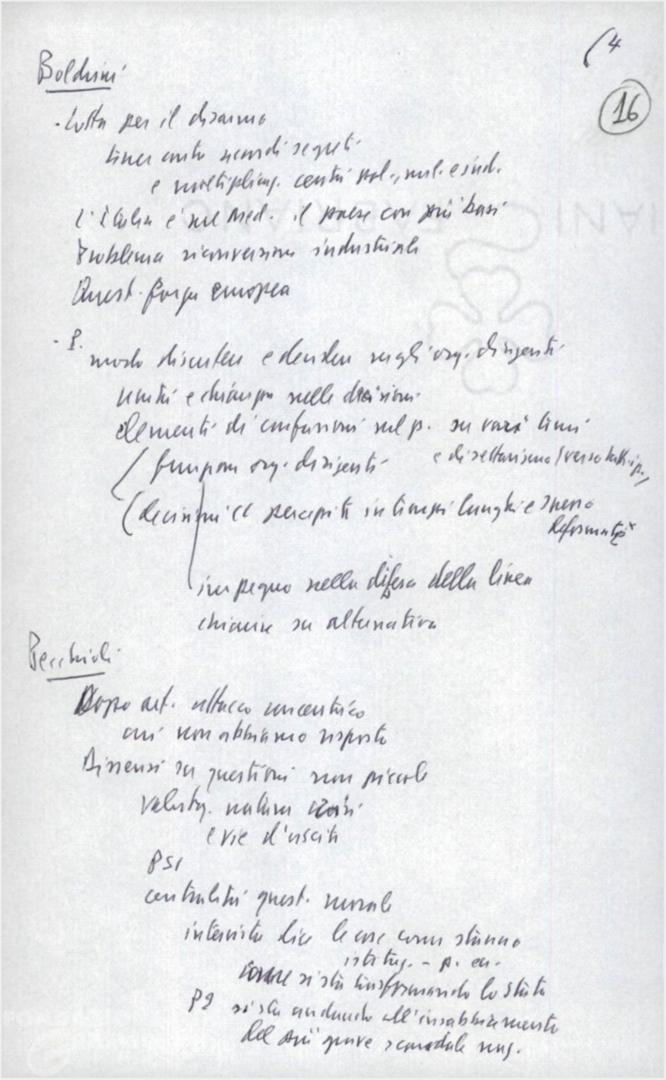 (4
16
Boldrini
- Lotta per il disarmo
linea accordi segreti
e moltiplicaz. centri pol., mil. e ind.
L'Italia è nel Med. il paese con più basi
Problema riconversione industriale
Quest. forza europea
- P.
modo discutere e decidere negli org. dirigenti
unità e chiarezza nelle decisioni
elementi di confusione nel p. su vari temi
e di settarismo (verso
(funzione org. dirigenti
(decisioni CC percepite in tempi lunghi e spesso
deformate
impegno nella difesa della linea
chiarire su alternativa
Pecchioli
Dopo art. attacco concentrico
cui non abbiamo risposto
Dissensi su questioni non piccole
valutaz. natura crisi
e vie d'uscita
PSI
centralità quest. morale
intervista dice le cose come stanno
istituz. -
come si sta trasformando lo Stato
P2 si sta andando all'insabbiamento
del più grave scandalo